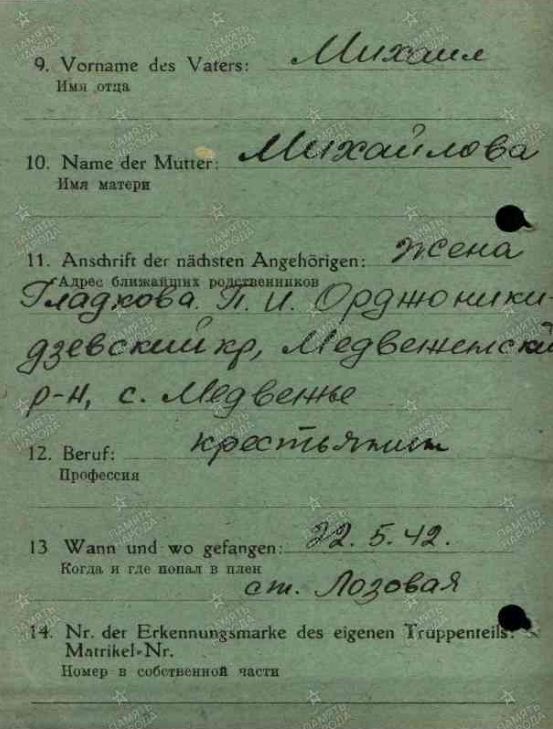 9. Vorname des Vaters: Михаил
Имя отца
10. Name der Mutter: Михайлова
Имя матери
11. Anschrift der nächsten Angehörigen: жена
Адрес ближайших родственников
Гладкова П. И. Орджоники-
дзевский кр, Медвеженский
р-н, с. Медвежье
12. Beruf: крестьянин
Профессия
13 Wann und wo gefangen: 22. 5. 42.
Когда и где попал в плен
ст. Лозовая
14. Nr. der Erkennungsmarke des eigenen Truppenteils:
Matrikel-Nr.
Номер в собственной части
ПАМЯТЬ НАРОДА